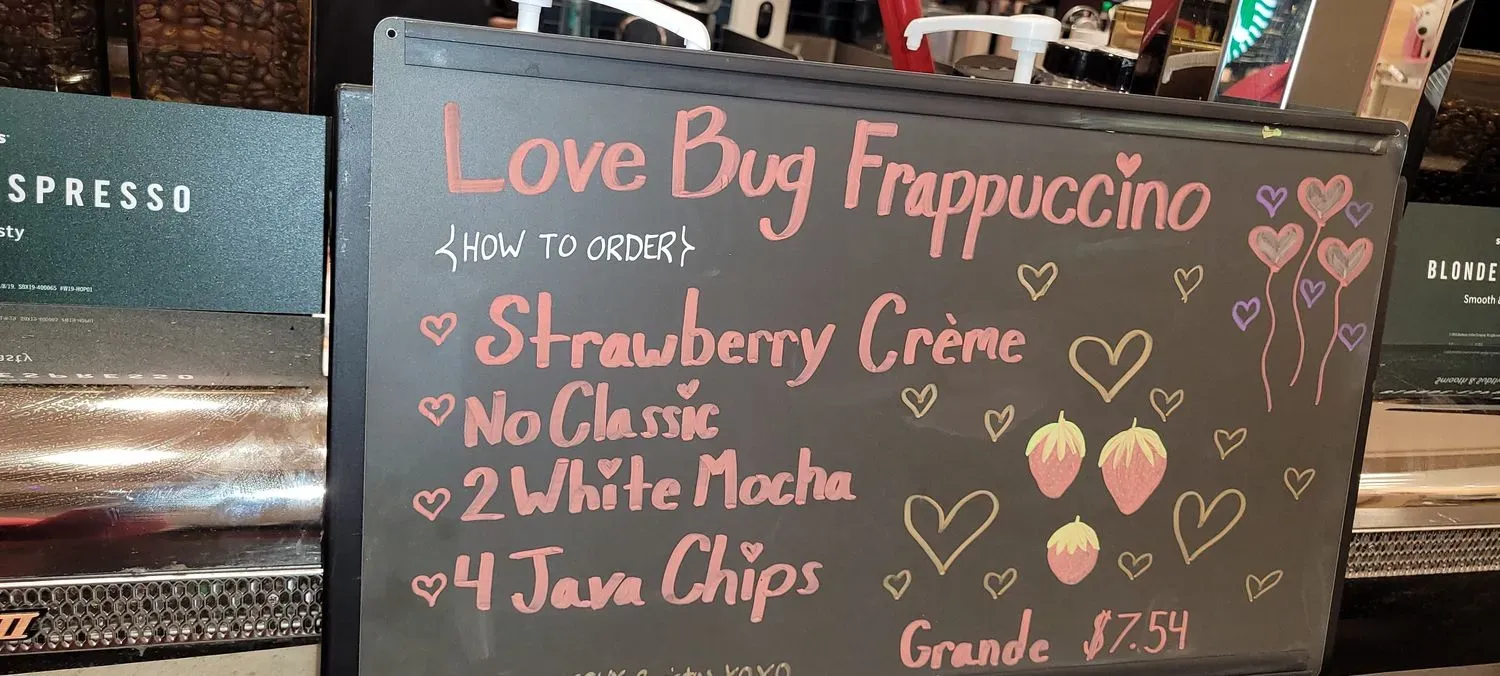 Love Bug Frappuccino
{HOW TO ORDER}
Strawberry Crème
No Classic
2 White Mocha
4 Java Chips
Grande $7.54
XOXO
SPRESSO
sty
BLONDE
Smooth &